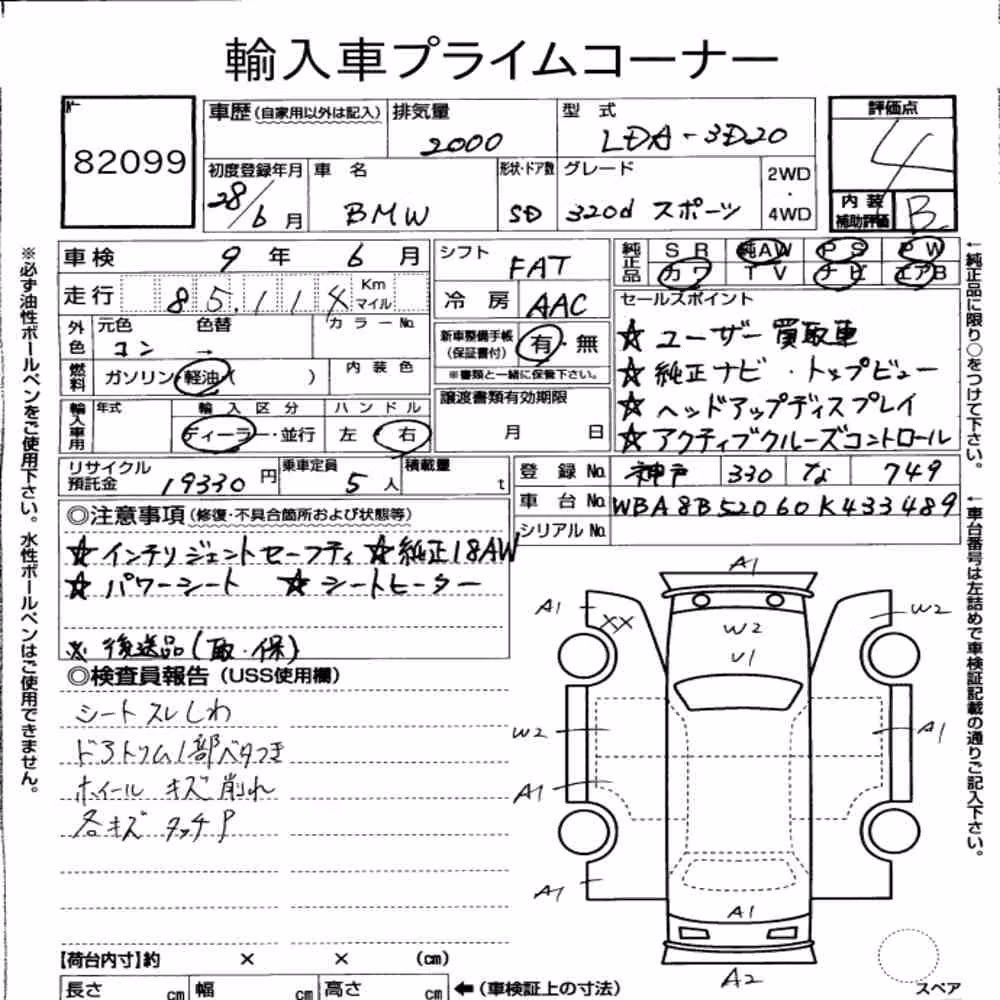 輸入車プライムコーナー
82099
車歴 (自家用以外は記入) 排気量 型 式
2000 LDA-3D20
評価点
4
初度登録年月 車 名 形状・ドア数 グレード 2WD・4WD
28/6月 BMW SD 320d スポーツ
内装補助評価 B
車検 9年 6月
シフト FAT
純正品 SR 純AW PS PW
カワ TV ナビ エアB
走行 85,114 Km マイル
冷房 AAC
セールスポイント
外色 元色 色替 カラーNo.
コン →
新車整備手帳 (保証書付) 有・無
※書類と一緒に保管下さい。
☆ ユーザー買取車
☆ 純正ナビ・トップビュー
☆ ヘッドアップディスプレイ
☆ アクティブクルーズコントロール
燃料 ガソリン・軽油( ) 内装色
譲渡書類有効期限
月 日
輸入車用 年式 輸入区分 ハンドル
ディーラー・並行 左・右
リサイクル預託金 19330円 乗車定員 5人 積載量 t
登録No. 神戸 330 な 749
車台No. WBA8B52060K433489
シリアルNo.
◎注意事項 (修復・不具合箇所および状態等)
☆ インテリジェントセーフティ ☆ 純正18AW
☆ パワーシート ☆ シートヒーター
※ 後送品(取・保)
◎検査員報告 (USS使用欄)
シート スレしわ
ドアトリム1部ベタつき
ホイール キズ 削れ
各キズ タッチP
A1
A1 XX W2
W2
U1
W2 A1
A1
A1 A1
A2
スペア
【荷台内寸】約 × × (cm)
長さ cm 幅 cm 高さ cm ←(車検証上の寸法)
※必ず油性ボールペンをご使用下さい。水性ボールペンはご使用できません。
←純正品に限り○をつけて下さい。
←車台番号は左詰めで車検証記載の通りご記入下さい。